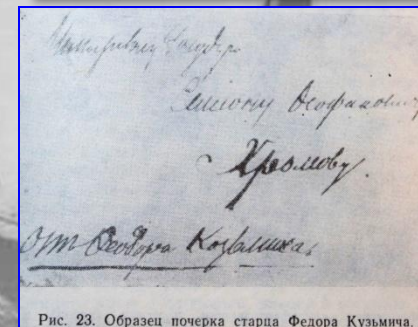 Милостивому Государю
Семіону Ѳеофановичу
Хромову.
отъ Ѳеодора Козьмича.
Рис. 23. Образец почерка старца Федора Кузьмича.